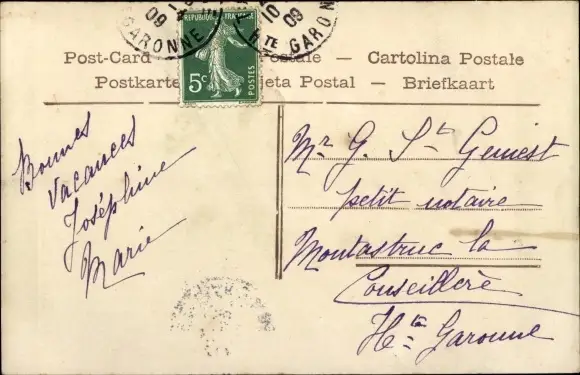 09
GARONNE
10
09
Hte GARON
REPUBLIQUE FRANÇAISE
5c
POSTES
Post-Card
Postale — Cartolina Postale
Postkarte
eta Postal — Briefkaart
Bonnes
vacances
Joséphine
Marie
Mr G. St Geniest
petit notaire
Montastruc la
Conseillère
Hte Garonne